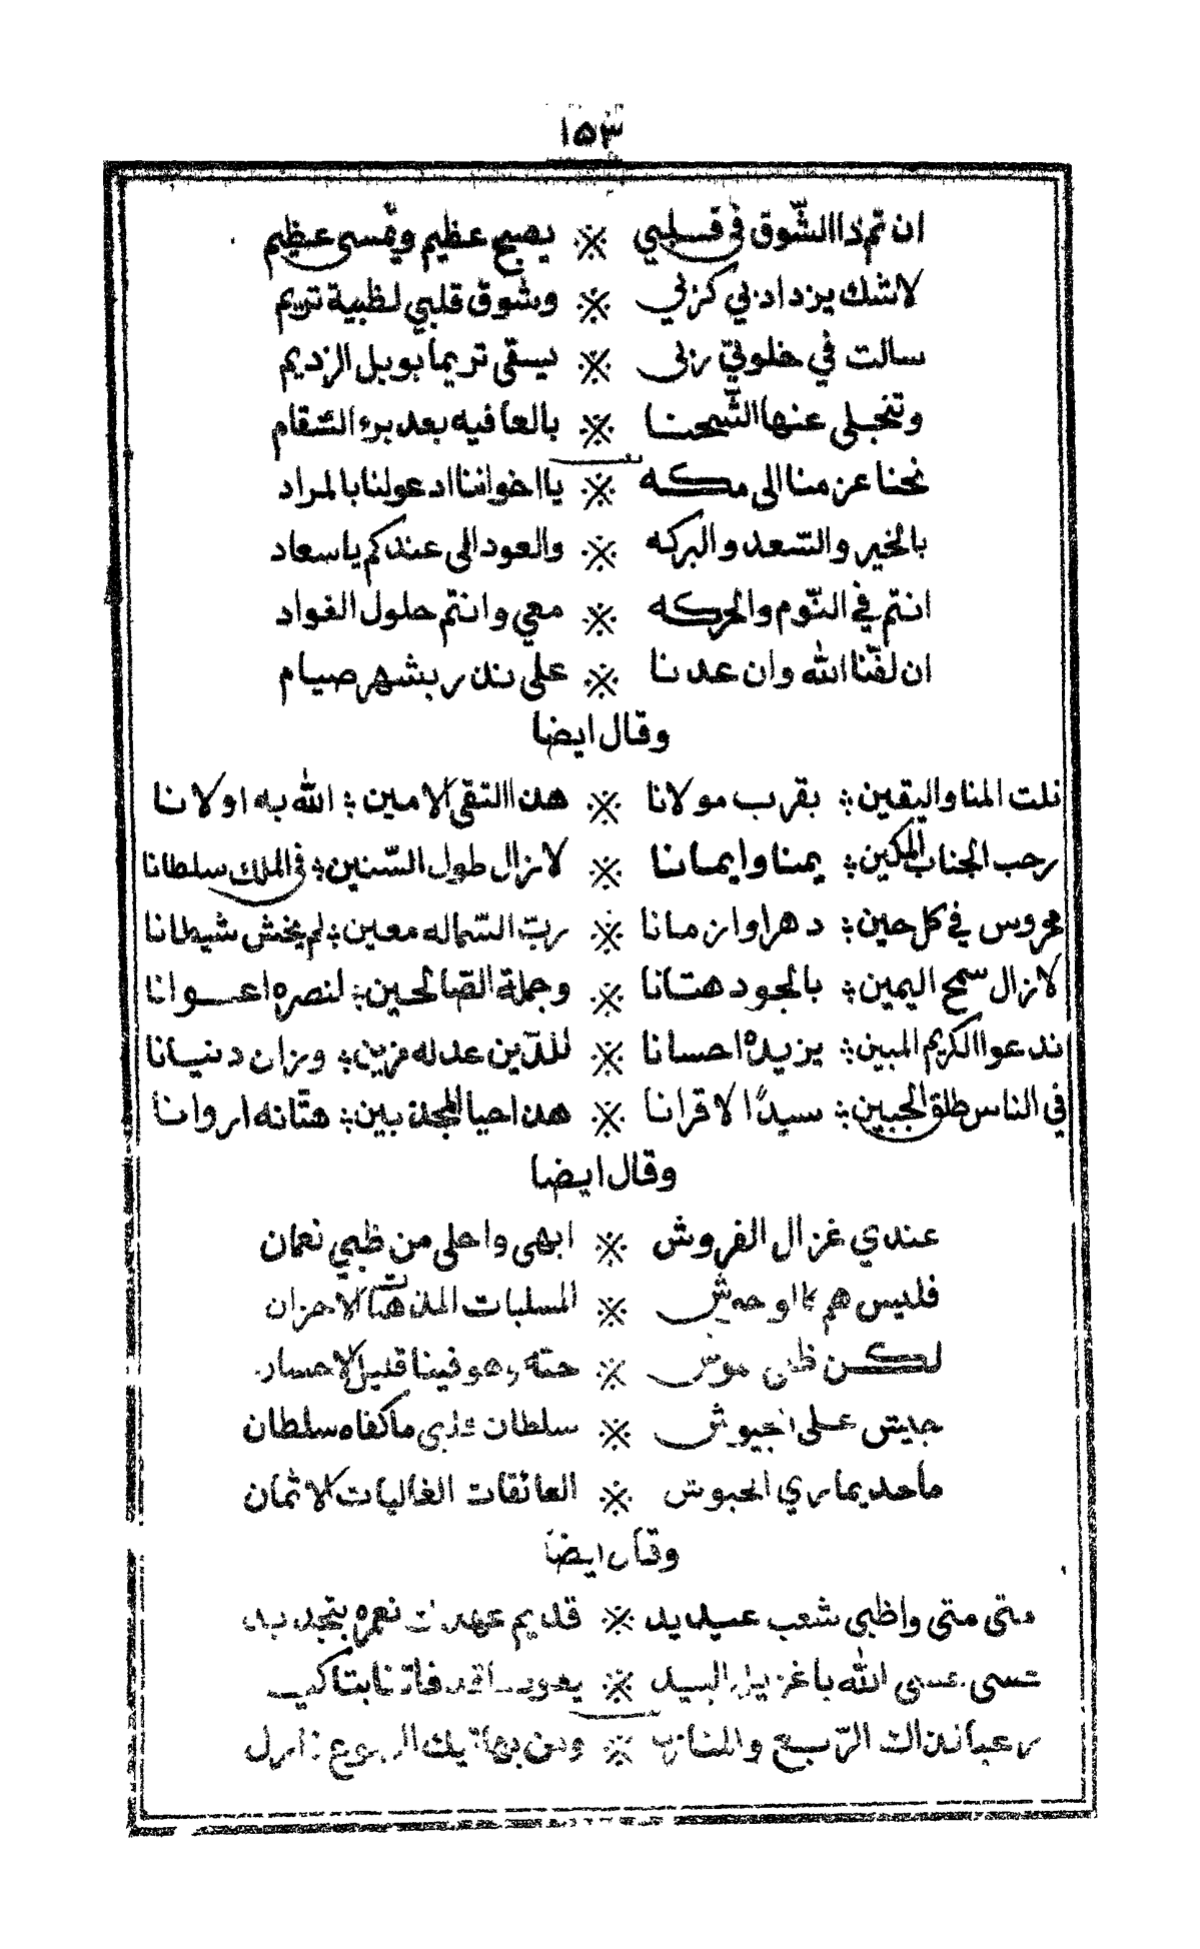 ١٥٣
ان تم ذا الشّوق في قلبي ※ يصبح عظيم ويمسي عظيم
لاشك يزداد بي كربي ※ وشوق قلبي لظبية تريم
سالت في خلوتي ربي ※ يسقى تريما بوبل الرديم
وتنجلى عنها الشّحنا ※ بالعافيه بعد برء السّقام
نحنا عزمنا الى مكه ※ يا اخواننا ادعوا لنا بالمراد
بالخير والسّعد والبركه ※ والعود الى عندكم يا سعاد
انتم في النّوم والحركه ※ معي وانتم حلول الفواد
ان لفّنا الله وان عدنا ※ على نذر بشهر صيام
وقال ايضا
نلت المنا واليقين ؛ بقرب مولانا ※ هذا التقي الامين ؛ الله به اولانا
رحب الجناب المكين ؛ يمنا وايمانا ※ لازال طول السّنين ؛ في الملك سلطانا
محروس في كل حين ؛ دهرا وازمانا ※ ربّ السّما له معين ؛ لم يخش شيطانا
لازال سمح اليمين ؛ بالجود هتانا ※ وجملة الصّالحين ؛ لنصره اعوانا
ندعوا الكريم المبين ؛ يزيده احسانا ※ للدّين عدله مزين ؛ وزان دنيانا
في الناس طلق الجبين ؛ سيدًا لاقرانا ※ هذا حيا المجدبين ؛ هتّانه اروانا
وقال ايضا
عندي غزال الفروش ※ ابهى واحلى من ظبي نعمان
فليس هم كالوحوش ※ المسلبات المذهبات الاحزان
لكن ظبي موش ※ حته وهو فينا قليل الاحسان
جيش على الجيوش ※ سلطان قلبي ما كفاه سلطان
ما حد يماري الحبوش ※ العائقات الغاليات الاثمان
وقال ايضا
متى متى واظبي شعب عيديد ※ قديم عهدك نعمره بتجديد
عسى عسى الله يا غزيل البيد ※ يعود ما قد فاتنا بتاكيد
رعيا لذاك الرّبع والمنازل ※ ومن بهاتيك الربوع نازل